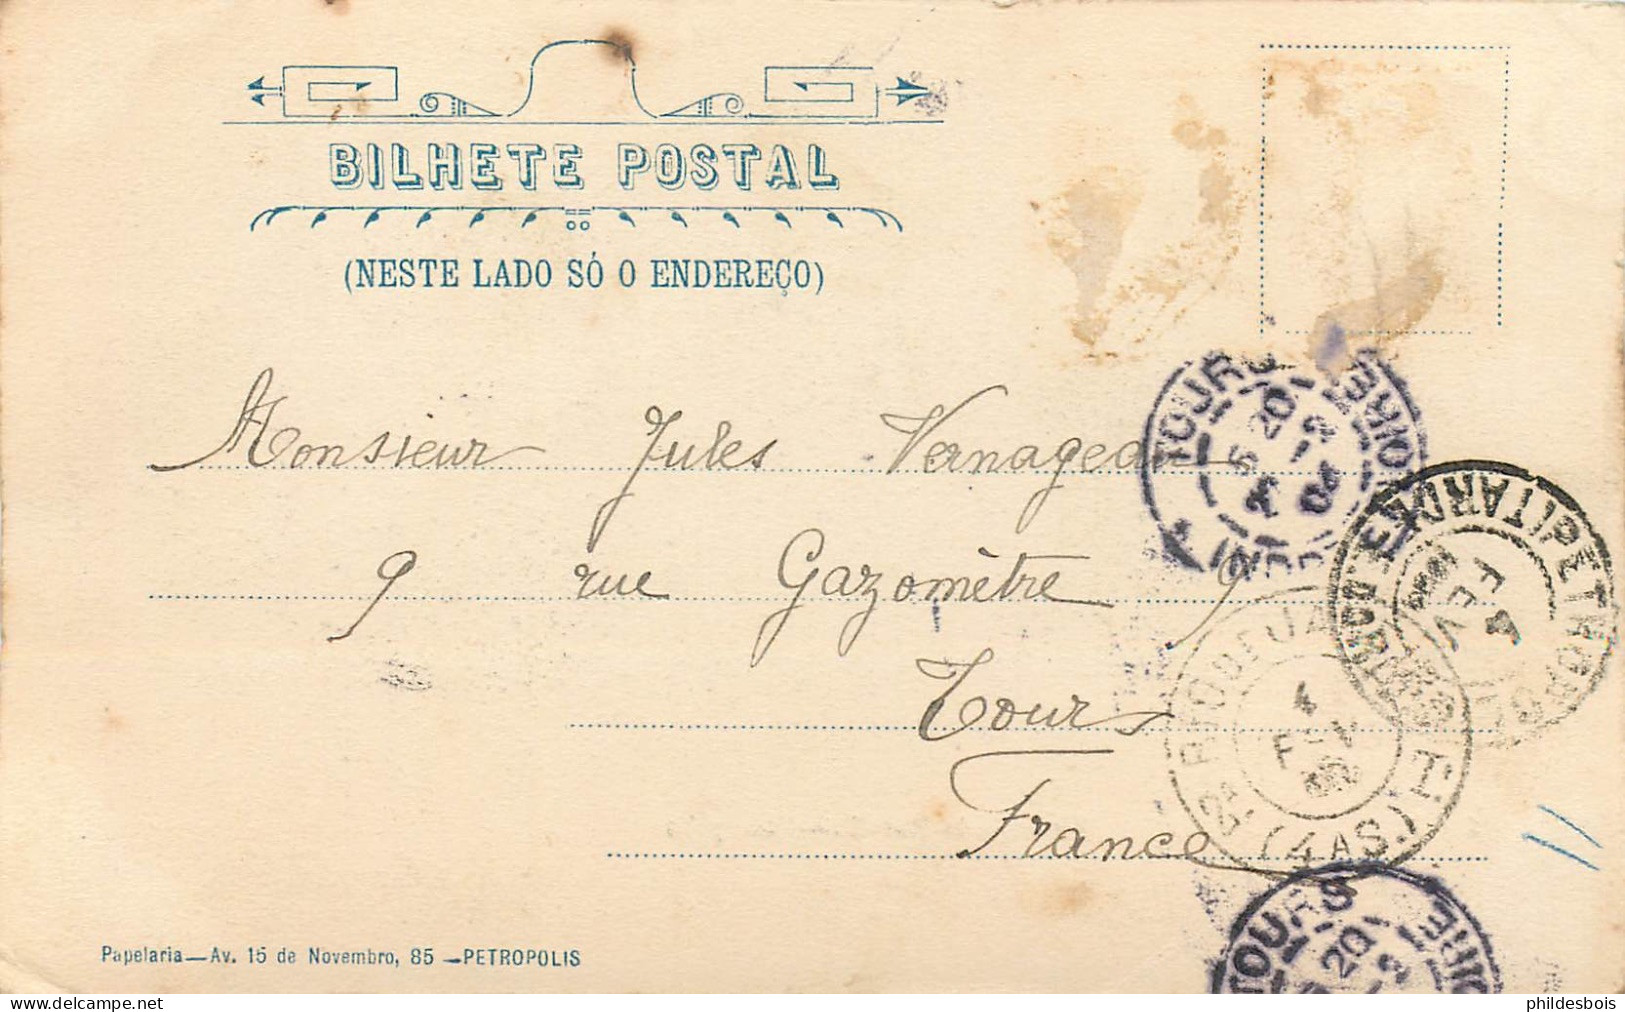 BILHETE POSTAL
(NESTE LADO SÓ O ENDEREÇO)
Monsieur Jules Vernageau
9 rue Gazomètre 9
Tours
France
TOURS
INDRE
LOIRE
20
04
PETROPOLIS
4
FEV
4
FEV
(4AS.)
TOURS
20
Papelaria—Av. 15 de Novembro, 85 —PETROPOLIS
phildesbois